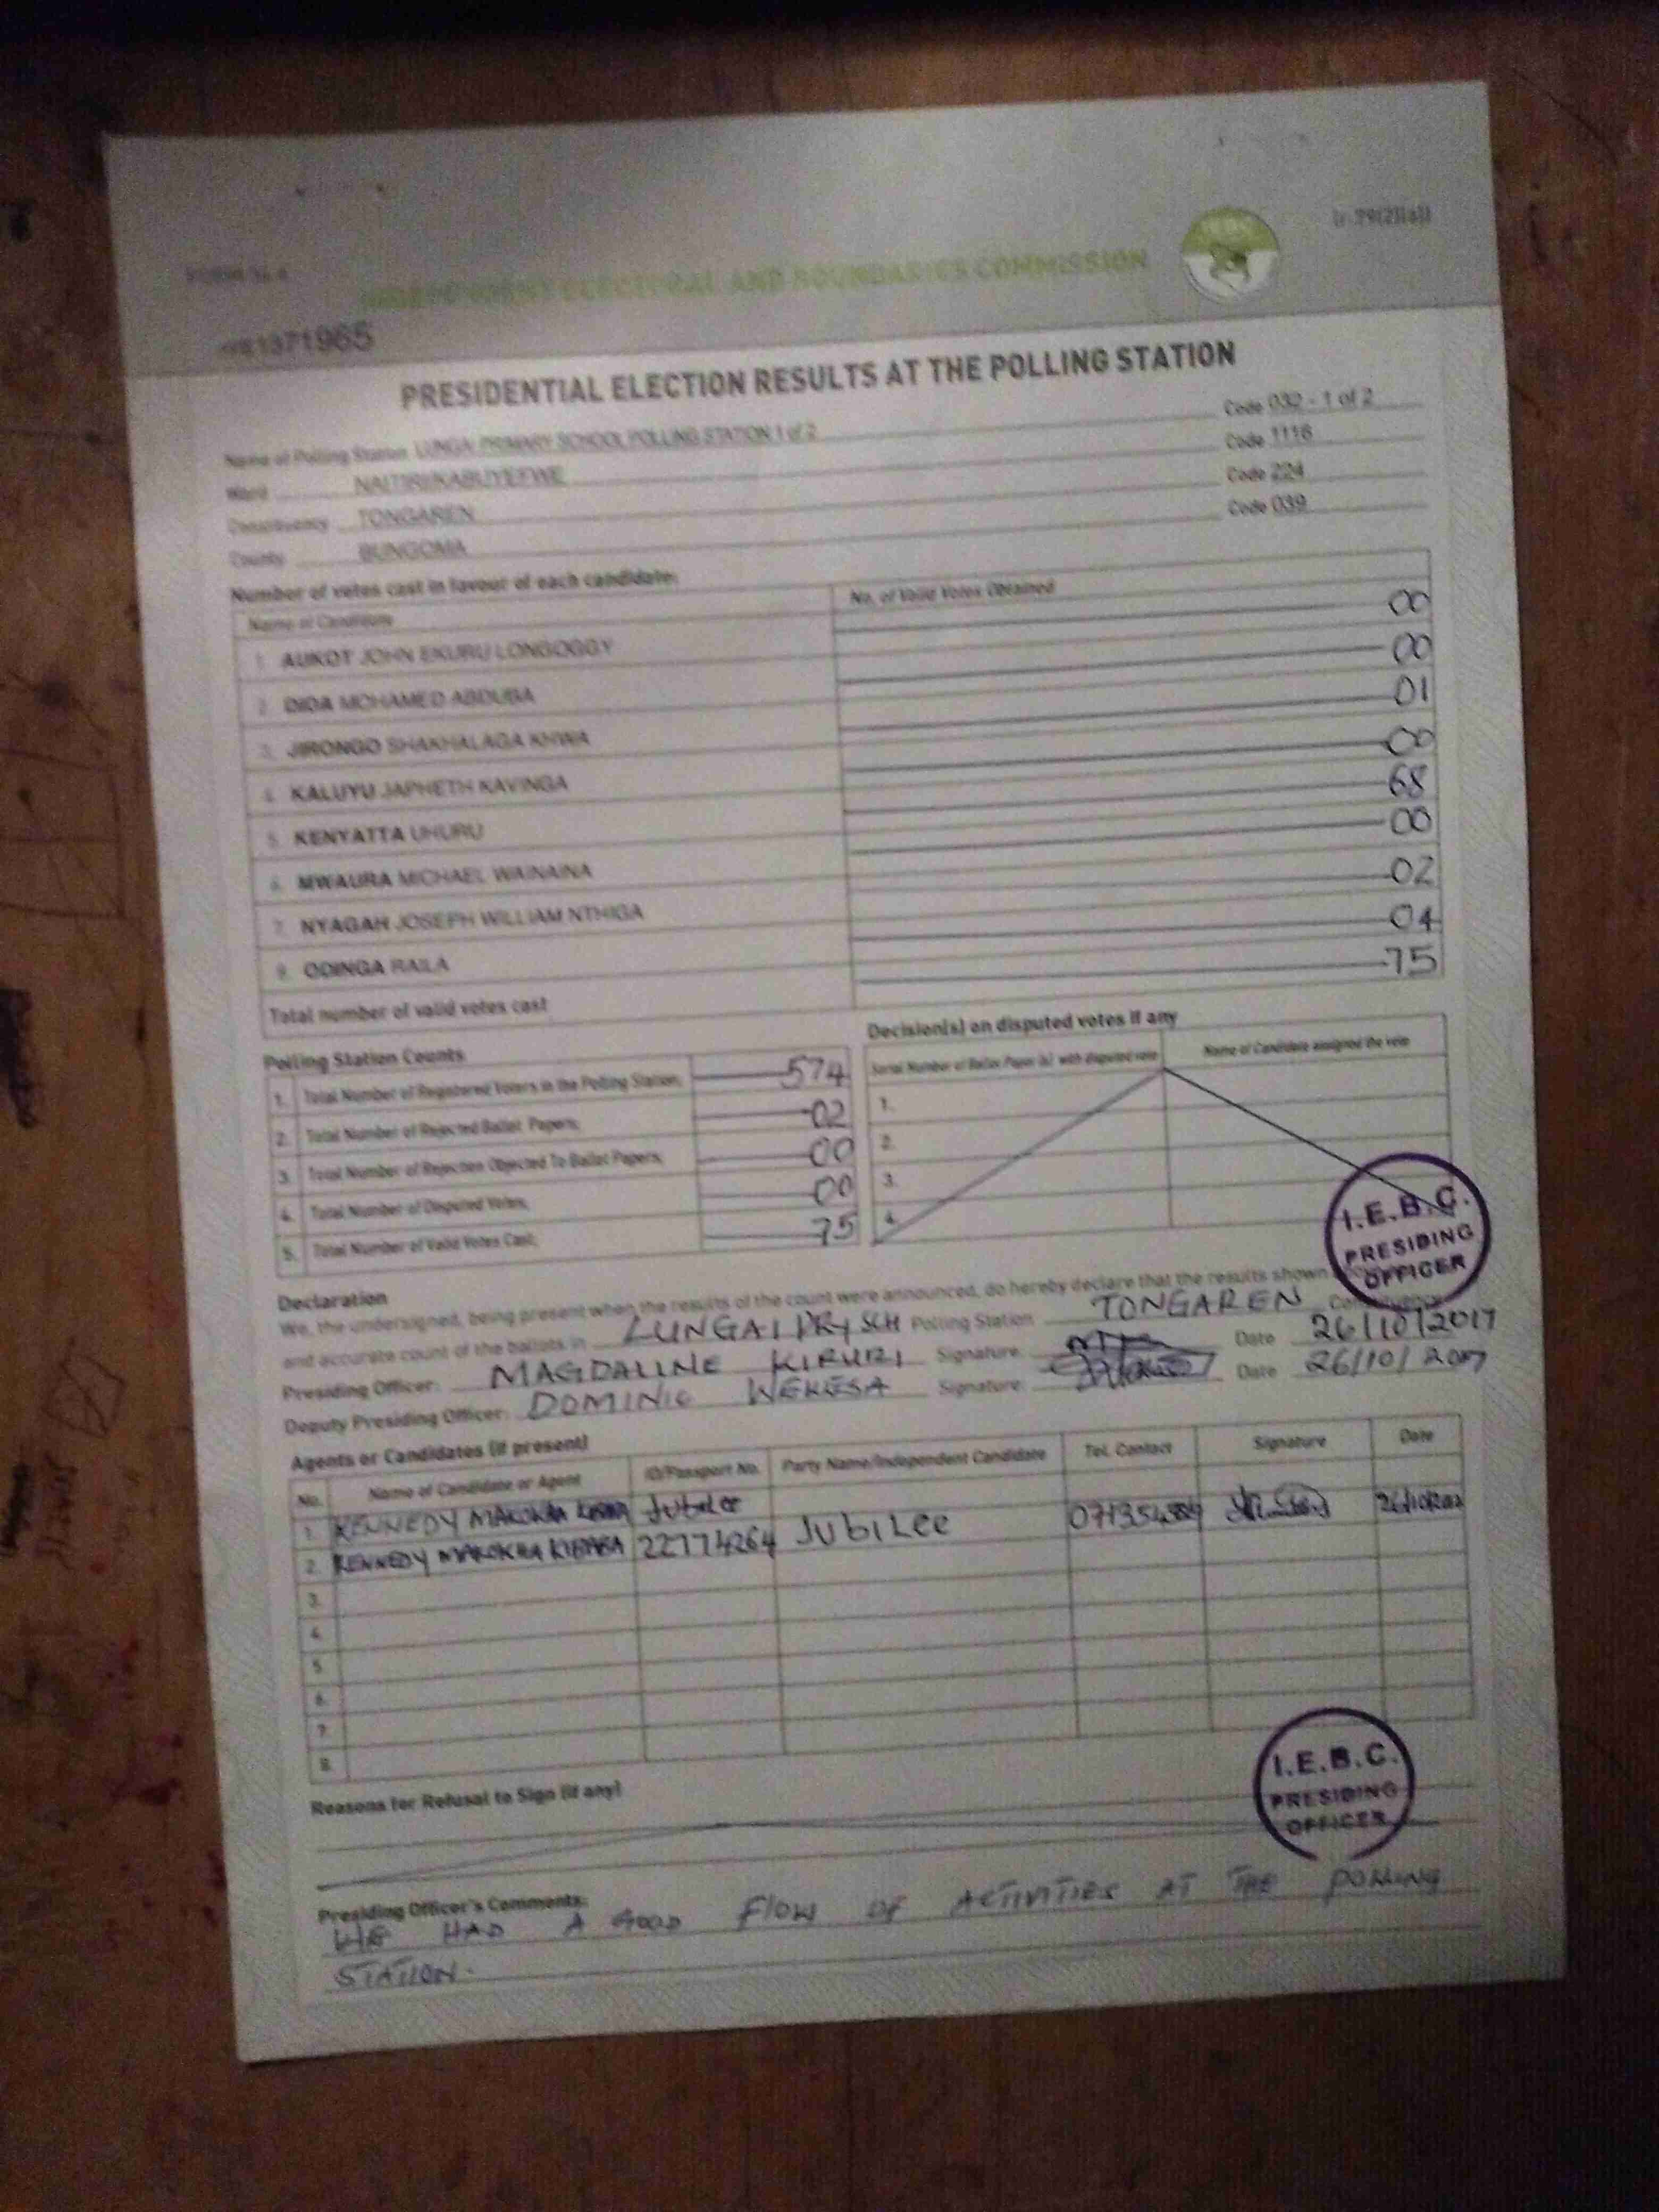 FORM 34 A
(r.79(2)(a))
INDEPENDENT ELECTORAL AND BOUNDARIES COMMISSION
1371965
PRESIDENTIAL ELECTION RESULTS AT THE POLLING STATION
Name of Polling Station LUNGAI PRIMARY SCHOOL POLLING STATION 1 of 2 Code 032 - 1 of 2
Ward NAITIRI/KABUYEFWE Code 1116
Constituency TONGAREN Code 224
County BUNGOMA Code 039
Number of votes cast in favour of each candidate:
Name of Candidate No. of Valid Votes Obtained
1. AUKOT JOHN EKURU LONGOGGY 00
2. DIDA MOHAMED ABDUBA 00
3. JIRONGO SHAKHALAGA KHWA 01
4. KALUYU JAPHETH KAVINGA 00
5. KENYATTA UHURU 68
6. MWAURA MICHAEL WAINAINA 00
7. NYAGAH JOSEPH WILLIAM NTHIGA 02
8. ODINGA RAILA 04
Total number of valid votes cast 75
Polling Station Counts
1. Total Number of Registered Voters in the Polling Station; 574
2. Total Number of Rejected Ballot Papers; 02
3. Total Number of Rejection Objected To Ballot Papers; 00
4. Total Number of Disputed Votes; 00
5. Total Number of Valid Votes Cast; 75
Decision(s) on disputed votes if any
Serial Number of Ballot Paper (s) with disputed vote Name of Candidate assigned the vote
1.
2.
3.
4.
I.E.B.C.
PRESIDING
OFFICER
Declaration
We, the undersigned, being present when the results of the count were announced, do hereby declare that the results shown
and accurate count of the ballots in LUNGAI PRY SCH Polling Station TONGAREN Constituency
Presiding Officer: MAGDALINE KIRURI Signature: Date 26/10/2017
Deputy Presiding Officer: DOMINIC WEKESA Signature: Date 26/10/2017
Agents or Candidates (if present)
No. Name of Candidate or Agent ID/Passport No. Party Name/Independent Candidate Tel. Contact Signature Date
1. KENNEDY MAKOKHA Jubilee
2. KENNEDY MAKOKHA KIBABA 22774264 JUBILEE
3.
4.
5.
6.
7.
8.
Reasons for Refusal to Sign (if any)
I.E.B.C.
PRESIDING
OFFICER
Presiding Officer's Comments:
WE HAD A GOOD FLOW OF ACTIVITIES AT THE POLLING
STATION.